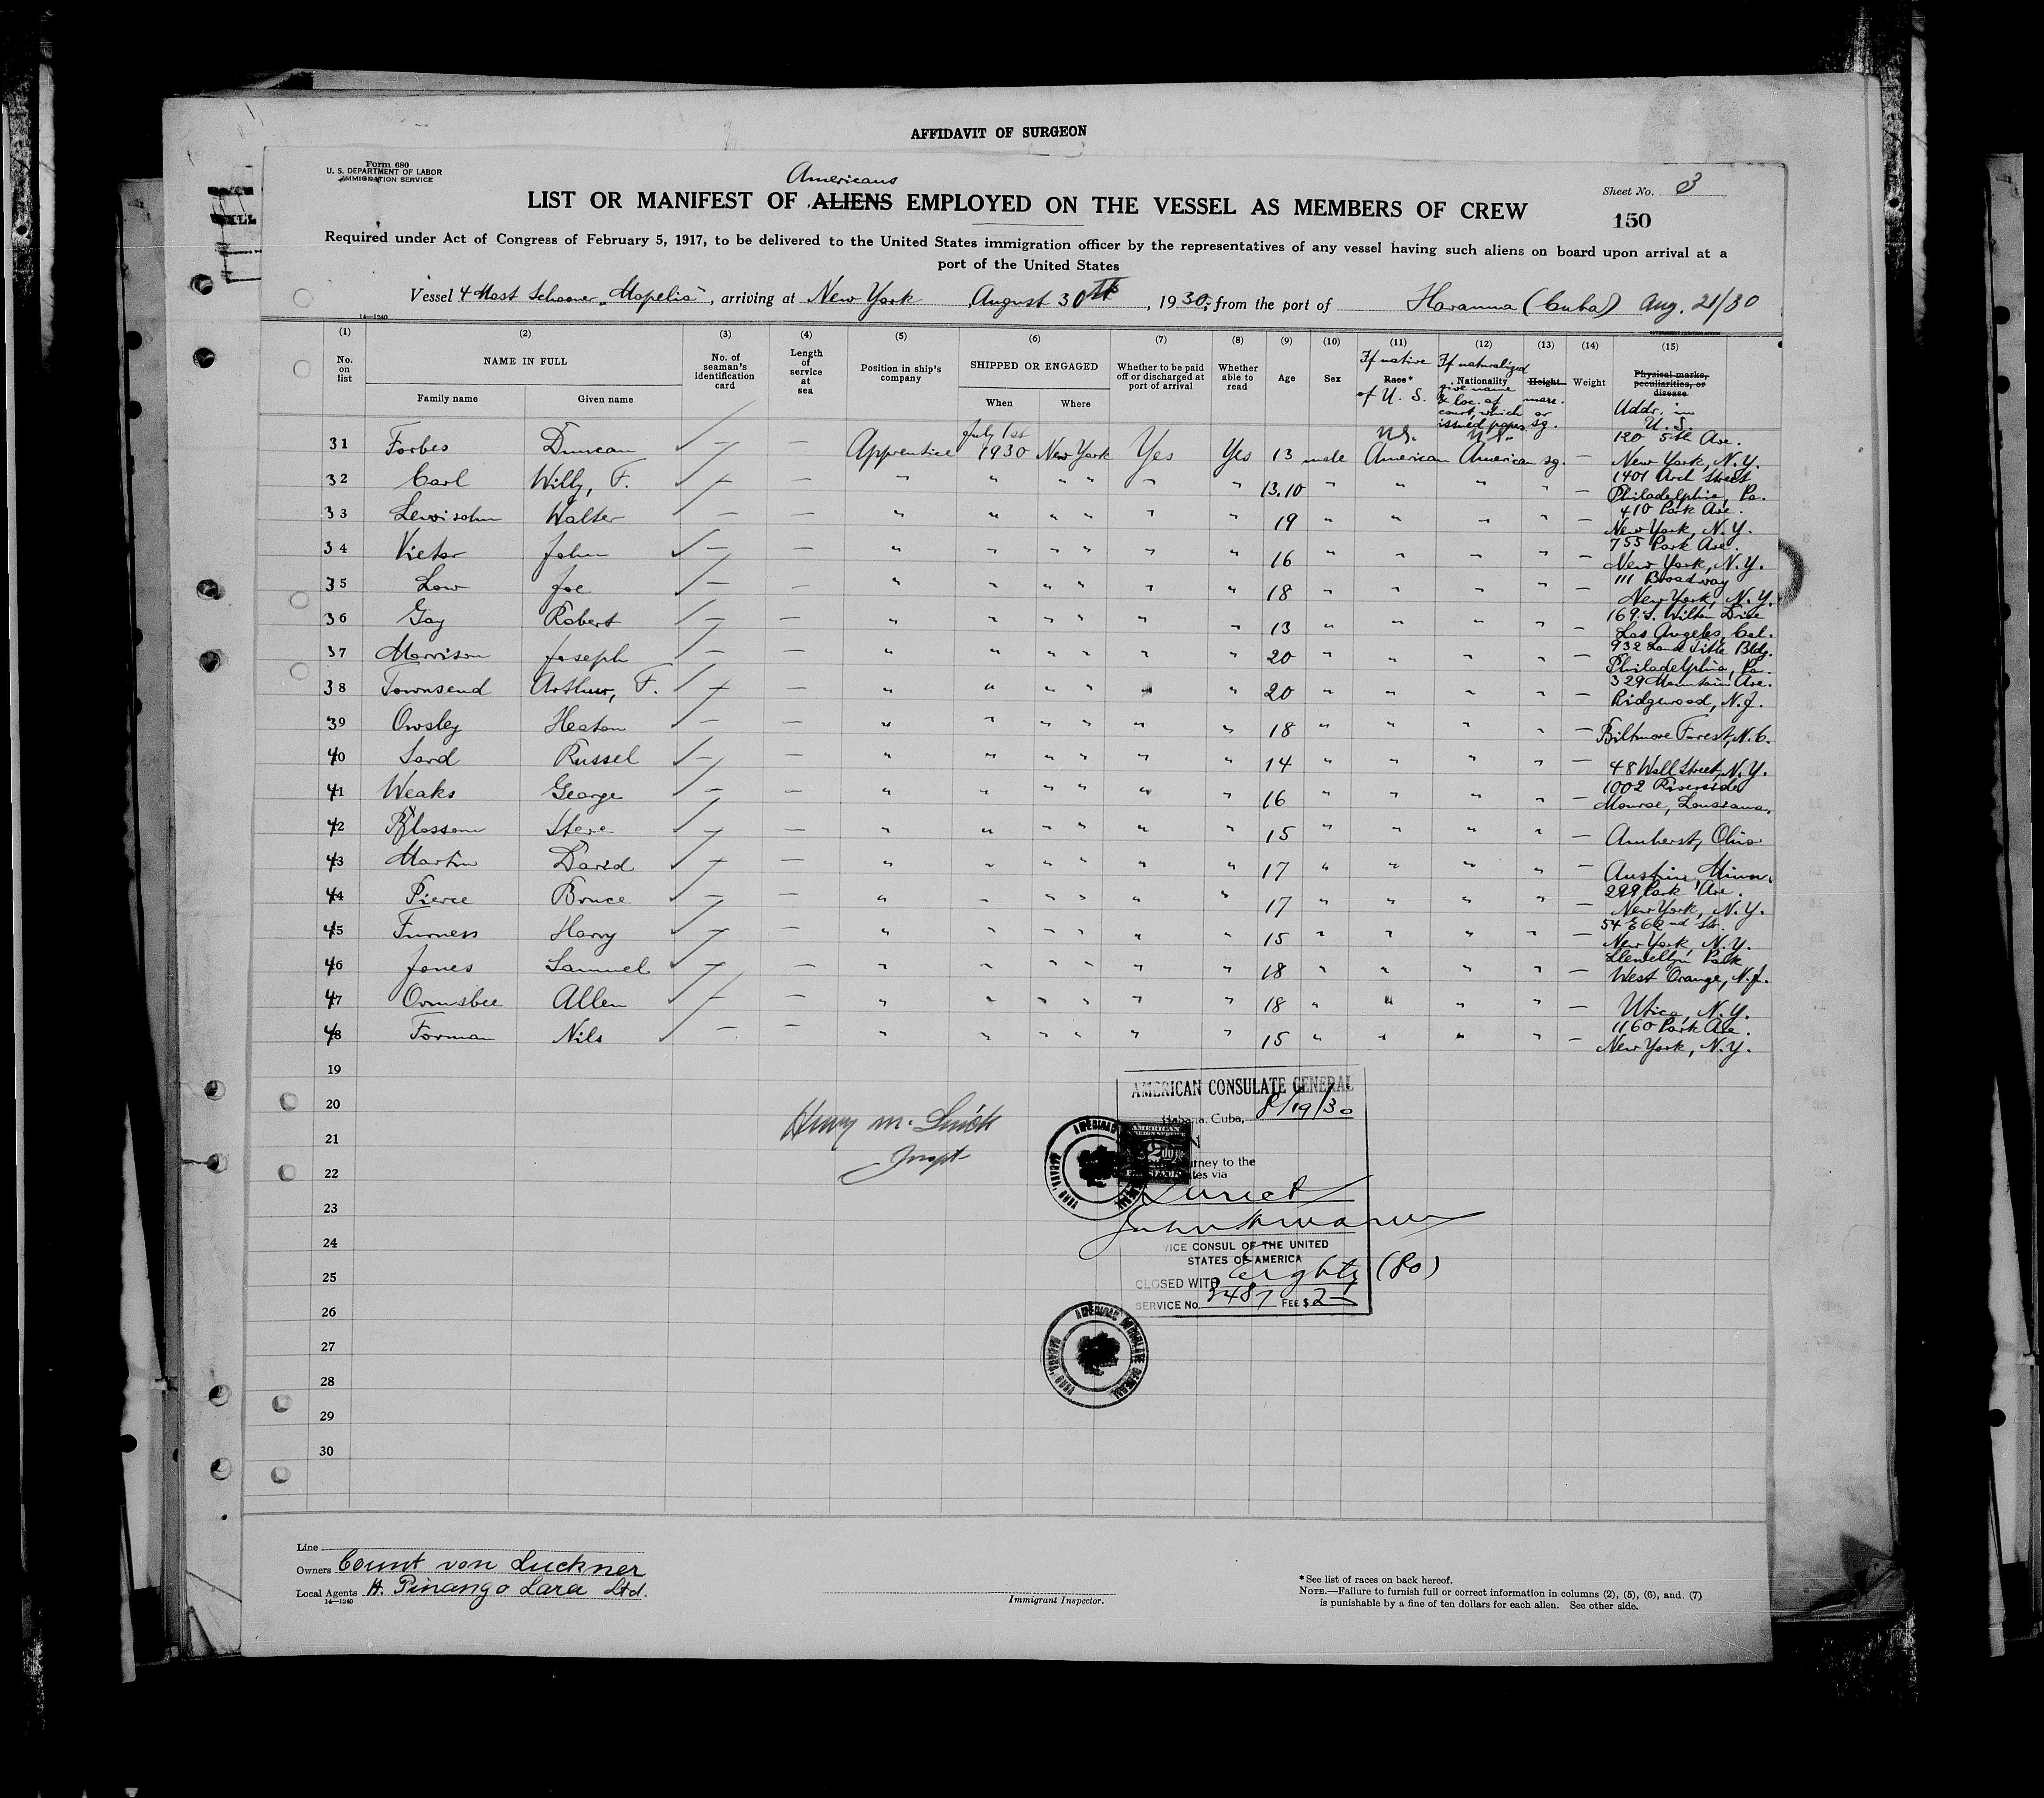 AFFIDAVIT OF SURGEON
Form 680
U. S. DEPARTMENT OF LABOR
IMMIGRATION SERVICE
Americans
LIST OR MANIFEST OF ALIENS EMPLOYED ON THE VESSEL AS MEMBERS OF CREW
Sheet No. 3
150
Required under Act of Congress of February 5, 1917, to be delivered to the United States immigration officer by the representatives of any vessel having such aliens on board upon arrival at a
port of the United States
Vessel 4 Mast Schooner „Mopelia", arriving at New York August 30th, 1930, from the port of Havanna (Cuba) Aug. 21/30
14—1240
(1) (2) (3) (4) (5) (6) (7) (8) (9) (10) (11) (12) (13) (14) (15)
No. on list
NAME IN FULL
Family name
Given name
No. of seaman's identification card
Length of service at sea
Position in ship's company
SHIPPED OR ENGAGED
When
Where
Whether to be paid off or discharged at port of arrival
Whether able to read
Age
Sex
If native Race* of U. S.
If naturalized Nationality give name & loc. of court, which issued papers
Height marr. or sg.
Weight
Physical marks, peculiarities, or disease
Addr. in U. S.
31 Forbes Duncan — — Apprentice July 1st 1930 New York Yes Yes 13 male U.S. American U.S. American sg. — 120 5th Ave. New York, N.Y.
32 Carl Willy, F. — — " " " " " " 13.10 " " " " — 1401 Arch Street Philadelphia, Pa.
33 Lewisohn Walter — — " " " " " " 19 " " " " — 410 Park Ave. New York, N.Y.
34 Vietor John — — " " " " " " 16 " " " " — 755 Park Ave. New York, N.Y.
35 Low Joe — — " " " " " " 18 " " " " — 111 Broadway New York, N.Y.
36 Gay Robert — — " " " " " " 13 " " " " — 169 S. Wilton Drive Los Angeles, Cal.
37 Morrison Joseph — — " " " " " " 20 " " " " — 932 Land Title Bldg. Philadelphia, Pa.
38 Townsend Arthur, F. — — " " " " " " 20 " " " " — 329 Mountain Ave. Ridgewood, N.J.
39 Owsley Heaton — — " " " " " " 18 " " " " — Biltmore Forest, N.C.
40 Sard Russel — — " " " " " " 14 " " " " — 48 Wall Street, N.Y.
41 Weaks George — — " " " " " " 16 " " " " — 1002 Riverside Monroe, Louisiana.
42 Blossom Steve — — " " " " " " 15 " " " " — Amherst, Ohio
43 Martin David — — " " " " " " 17 " " " " — Austin, Minn.
44 Pierce Bruce — — " " " " " " 17 " " " " — 299 Park Ave. New York, N.Y.
45 Furness Harry — — " " " " " " 15 " " " " — 54 E 62nd Str. New York, N.Y.
46 Jones Samuel — — " " " " " " 18 " " " " — Llewellyn Park West Orange, N.J.
47 Ormsbee Allen — — " " " " " " 18 " " " " — Utica, N.Y.
48 Forman Nils — — " " " " " " 15 " " " " — 1160 Park Ave. New York, N.Y.
19
20
21
22
23
24
25
26
27
28
29
30
Henry M.
Inspt
AMERICAN CONSULATE GENERAL
Habana, Cuba, 8/19/30
AMERICAN
2 00
journey to the
via
Direct
VICE CONSUL OF THE UNITED
STATES OF AMERICA
CLOSED WITH Eighty (80)
SERVICE No. 3487 FEE $ 2—
AMERICAN CONSULATE GENERAL
Line
Owners Count von Luckner
Local Agents H. Pinango Lara Ltd.
14—1240
Immigrant Inspector.
* See list of races on back hereof.
NOTE.—Failure to furnish full or correct information in columns (2), (5), (6), and (7)
is punishable by a fine of ten dollars for each alien. See other side.